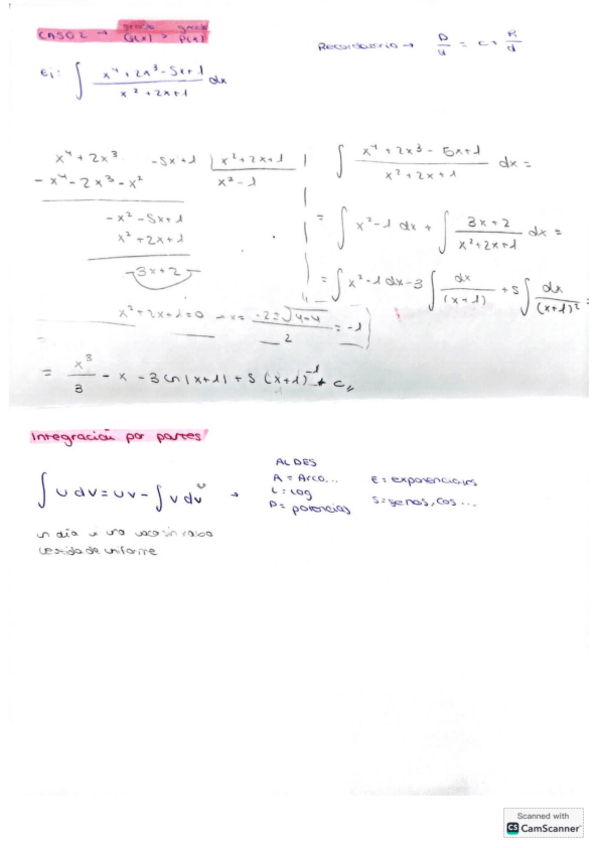 CASO 2 → grado Q(x) > grado P(x)
Recordatorio → D/d = C + R/d
ej: ∫ (x⁴ + 2x³ - 5x + 1)/(x² + 2x + 1) dx
x⁴ + 2x³ - 5x + 1 | x² + 2x + 1
- x⁴ - 2x³ - x² x² - 1
- x² - 5x + 1
x² + 2x + 1
- 3x + 2
x² + 2x + 1 = 0 → x = (-2 ± √4-4)/2 = -1
∫ (x⁴ + 2x³ - 5x + 1)/(x² + 2x + 1) dx =
= ∫ x² - 1 dx + ∫ (3x + 2)/(x² + 2x + 1) dx =
= ∫ x² - 1 dx - 3 ∫ dx/(x+1) + 5 ∫ dx/(x+1)² =
= x³/3 - x - 3 ln |x+1| + 5 (x+1)⁻¹ + C
Integración por partes
∫ u dv = uv - ∫ v du →
ALDES
A = Arco...
L = Log
P = potencias
E = exponenciales
S = senos, cos...
un día vi una vaca sin rabo
vestida de uniforme
Scanned with
CS CamScanner